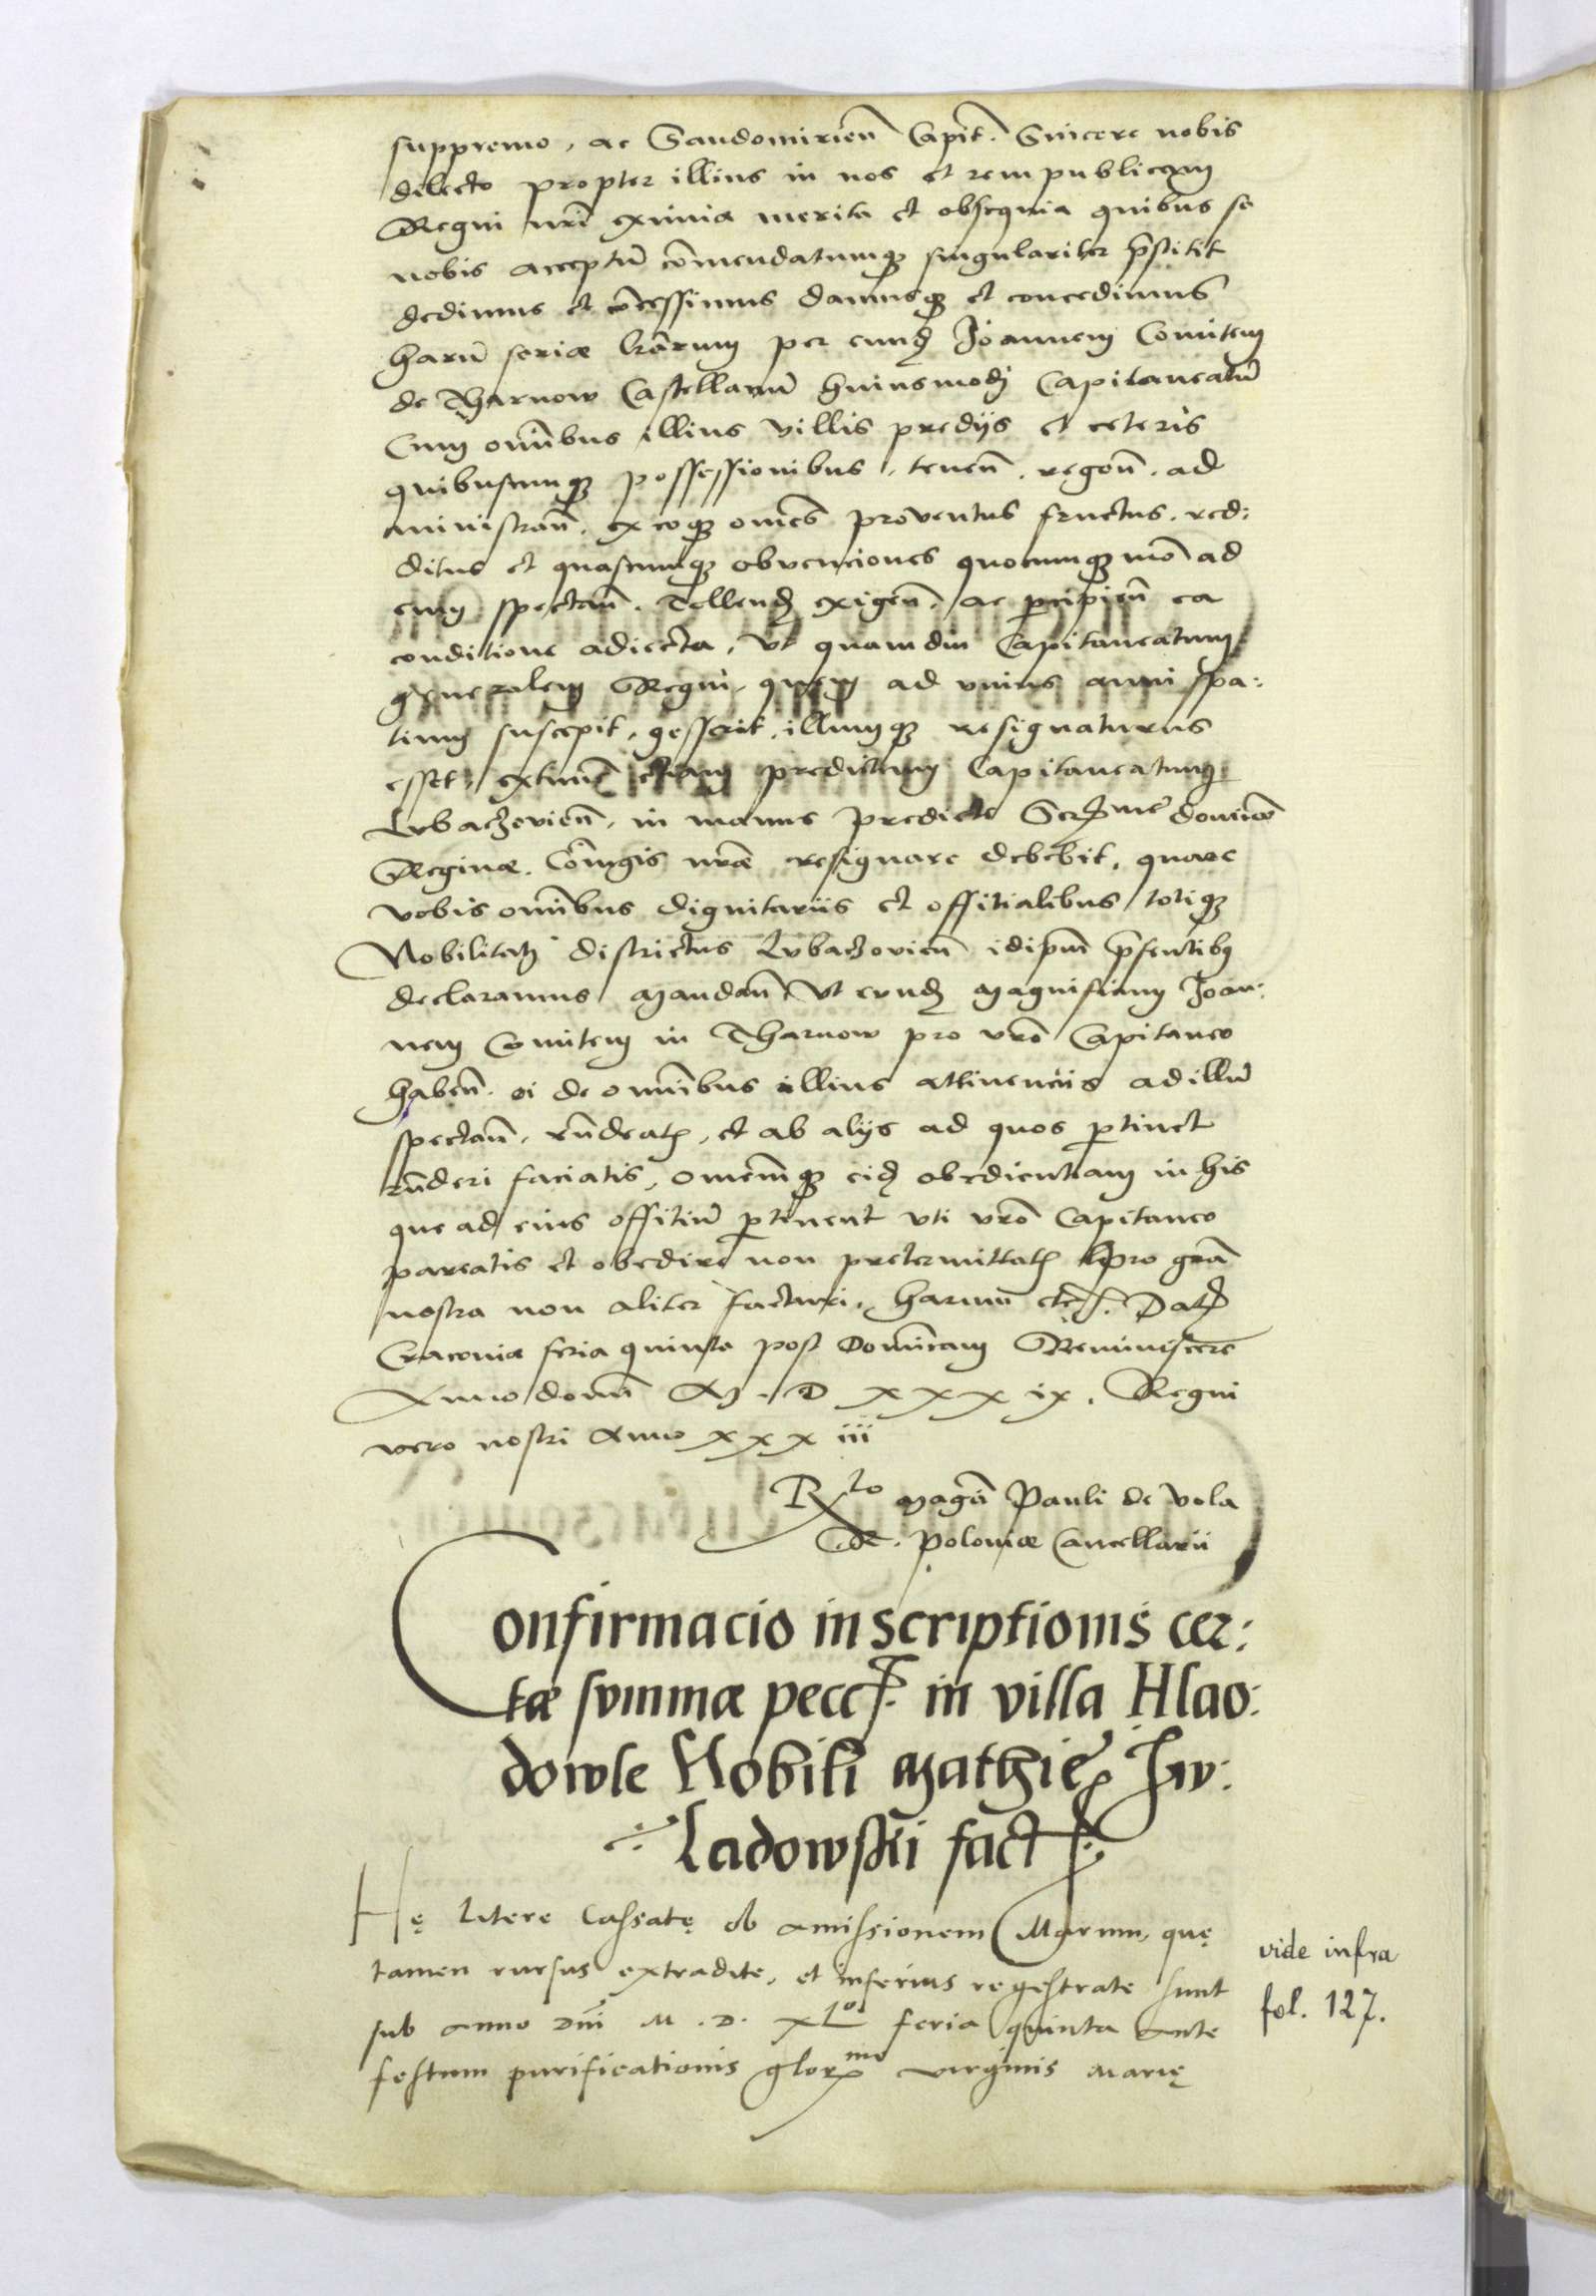 suppremo, ac Sandomirien̄ Capit̄. Sincere nobis
dilecto propter illius in nos et rempublicam
Regni nr̄i eximia merita et obsequia quibus se
nobis acceptū com̄endatumqꝫ singulariter p̄stitit
dedimus et concessimus damusqꝫ et concedimus
harū serie lr̄arum per eundꝫ Joannem Comitem
de Tharnow Castellanū huiusmodi Capitaneatū
Cum omībus illius villis predijs et ceteris
quibuscunqꝫ possessionibus, tenen̄. regen̄. ad
ministran̄. ex eoqꝫ om̄es proventus fructus. red:
ditus et quascunqꝫ obvenciones quocunqꝫ mō ad
eum spectan̄. Tollendꝫ exigen̄. ac percipien̄ ea
conditione adiecta, vt quamdiu Capitaneatum
generalem Regni, quem ad vnius anni spa:
tium suscepit, gesserit, illumqꝫ resignaturus
esset, extunc etiam predictum Capitaneatum
Lubaczovien̄. in manus predicte Serꝫme dominæ
Reginæ. Con̄iugis nr̄æ resignare debebit, quare
vobis omībus dignitariis et offitialibus totiqꝫ
Nobilitatj districtus Lubaczovien̄ idipsum p̄sentibꝫ
declaramus mandan̄ vt eundꝫ magnificum Joan:
nem Comitem in Tharnow pro vr̄o Capitaneo
haben̄. ei de omnibus illius attinenciis ad illū
spectan̄, rn̄deatꝫ, et ab alijs ad quos pertinet
rn̄deri faciatis, omnemqꝫ eidꝫ obedientiam in his
que ad eius offitiū pertinent vti vr̄o Capitaneo
pareatis et obedire non pretermittatꝫ pro grā
nostra non aliter facturi, harum etc̄. Datꝫ
Cracoviæ feria quinta post Dominicam Reminiscere
Anno domī M. D xxxix. Regni
vero nostri Anno xxxiii
Rlo magci Pauli de Vola
R. Poloniæ Cancellarii
Confirmacio inscriptionis cer:
tæ summæ pecc. in villa Hlao:
dowle Nobili Mathie Hw:
ladowski fact
Hę litere Cassatę ob amissionem illarum, quę
tamen rursus extradite, et inferius regestrate sunt
sub anno Dnī M.D. XLo feria quinta ante
festum purificationis glormo virginis Marię
vide infra
fol. 127.